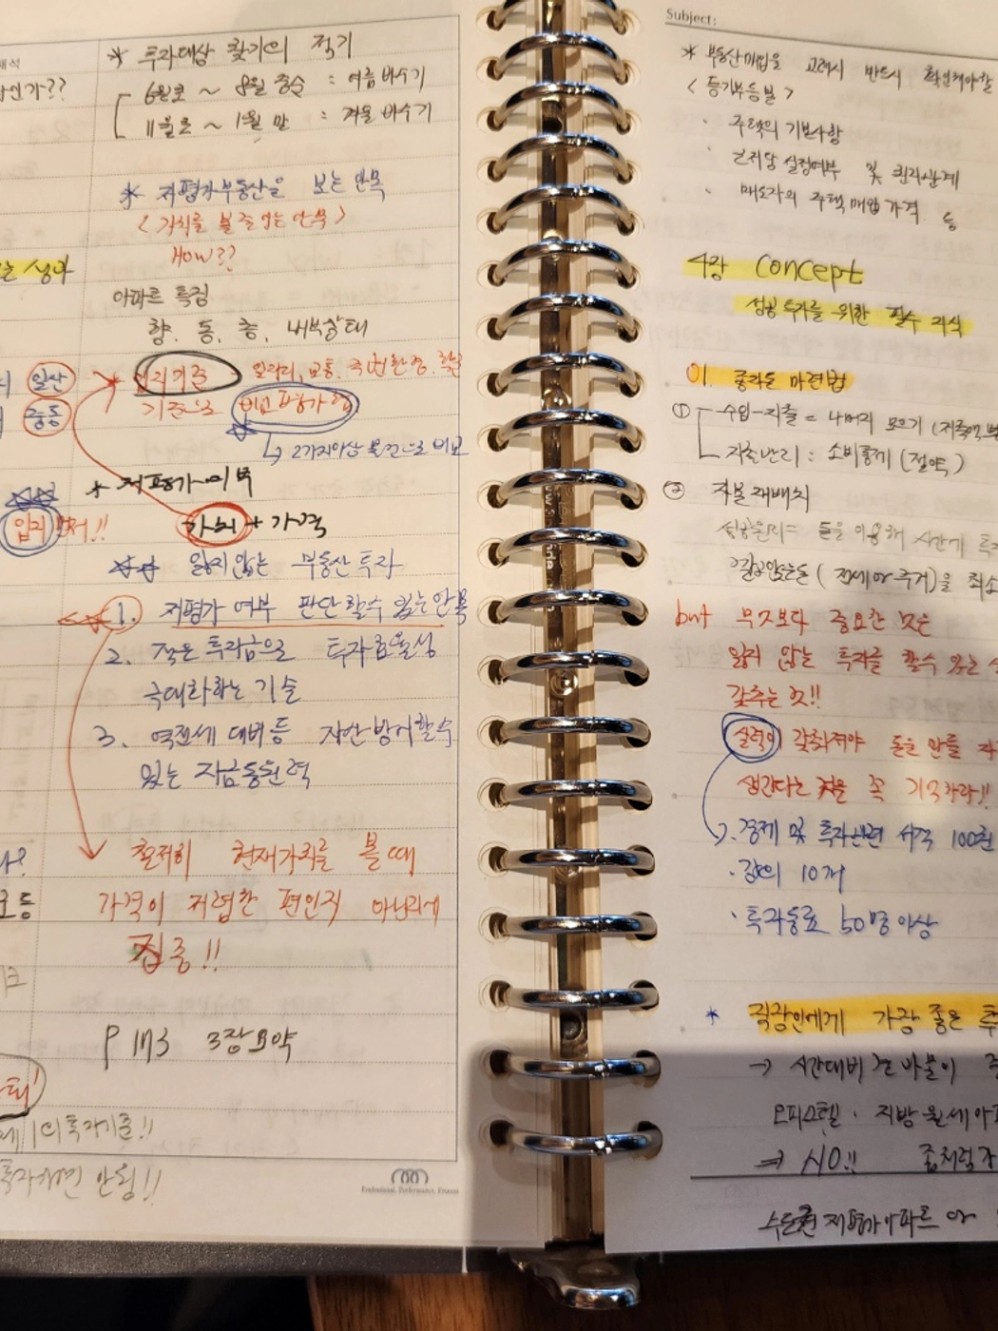 * 투자대상 찾기의 적기
6월초 ~ 8월 중순 : 여름 비수기
11월초 ~ 1월 말 : 겨울 비수기
* 저평가부동산을 보는 안목
< 가치를 볼 줄 아는 안목 >
How??
아파트 특징
향, 동, 층, 내부상태
입지기준 일자리, 교통, 학군
기준으로 비교평가
↳ 2가지이상 물건으로 비교
일산
중동
* 저평가 여부
가치 + 가격
입지 !!
잃지않는 부동산 투자
1. 저평가 여부 판단할수 있는 안목
2. 적은 투자금으로 투자효율성
극대화하는 기술
3. 역전세 대비 등 방어할수
있는 자금동원력
철저히 현재가치를 볼때
가격이 저렴한 편인지 아닌지에
집중!!
P 173 3장 요약
투자기준!!
안됨!!
Subject:
* 부동산매입을 고려시 반드시 확인해야할
< 등기부등본 >
· 주택의 기본사항
· 근저당 설정여부 및 권리관계
· 매도자의 주택 매입가격 등
4장 concept
성공투자를 위한 필수 지식
01. 종자돈 마련법
① 수입-지출 = 나머지 모으기
지출관리 : 소비통제 (절약)
② 자본 재배치
돈을 이용해
깔고앉은돈 ( 전세 or 주거)을
but 무엇보다 중요한 것은
잃지 않는 투자를 할수 있는
갖추는 것!!
실력이 갖춰져야 돈을 만들
생긴다는 것을 꼭 기억하라!!
· 경제 및 투자관련 서적 100권
· 강의 10개
· 투자동료 50명 이상
* 직장인에게 가장 좋은
→ 시간대비
오피스텔 · 지방 월세
⇒ NO!!
수도권 저평가 아파트 or